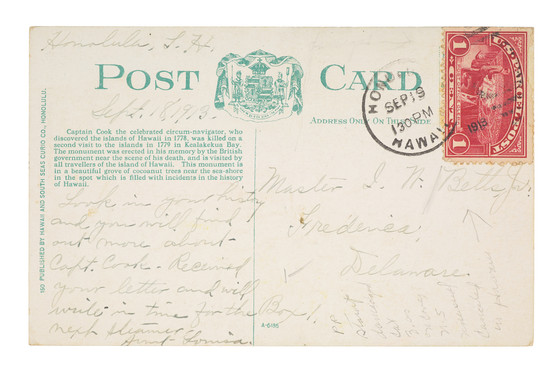 Honolulu, T. H.
Sept. 18, 1913.
POST CARD
ADDRESS ONLY ON THIS SIDE
Captain Cook the celebrated circum-navigator, who
discovered the islands of Hawaii in 1778, was killed on a
second visit to the islands in 1779 in Kealakekua Bay.
The monument was erected in his memory by the British
government near the scene of his death, and is visited by
all travellers of the island of Hawaii. This monument is
in a beautiful grove of cocoanut trees near the sea-shore
in the spot which is filled with incidents in the history
of Hawaii.
160 PUBLISHED BY HAWAII AND SOUTH SEAS CURIO CO., HONOLULU.
Look in your history
and you will find
out more about
Capt. Cook - Received
your letter and will
write in time for the
next steamer.
Aunt Louisa.
A-6186
HONO
SEP 18
1 30 PM
1913
HAWAII
1 1
U.S. PARCEL POST
Master I. W. Betts, Jr.
Frederica,
Delaware.
Box 1.
PP
stamp